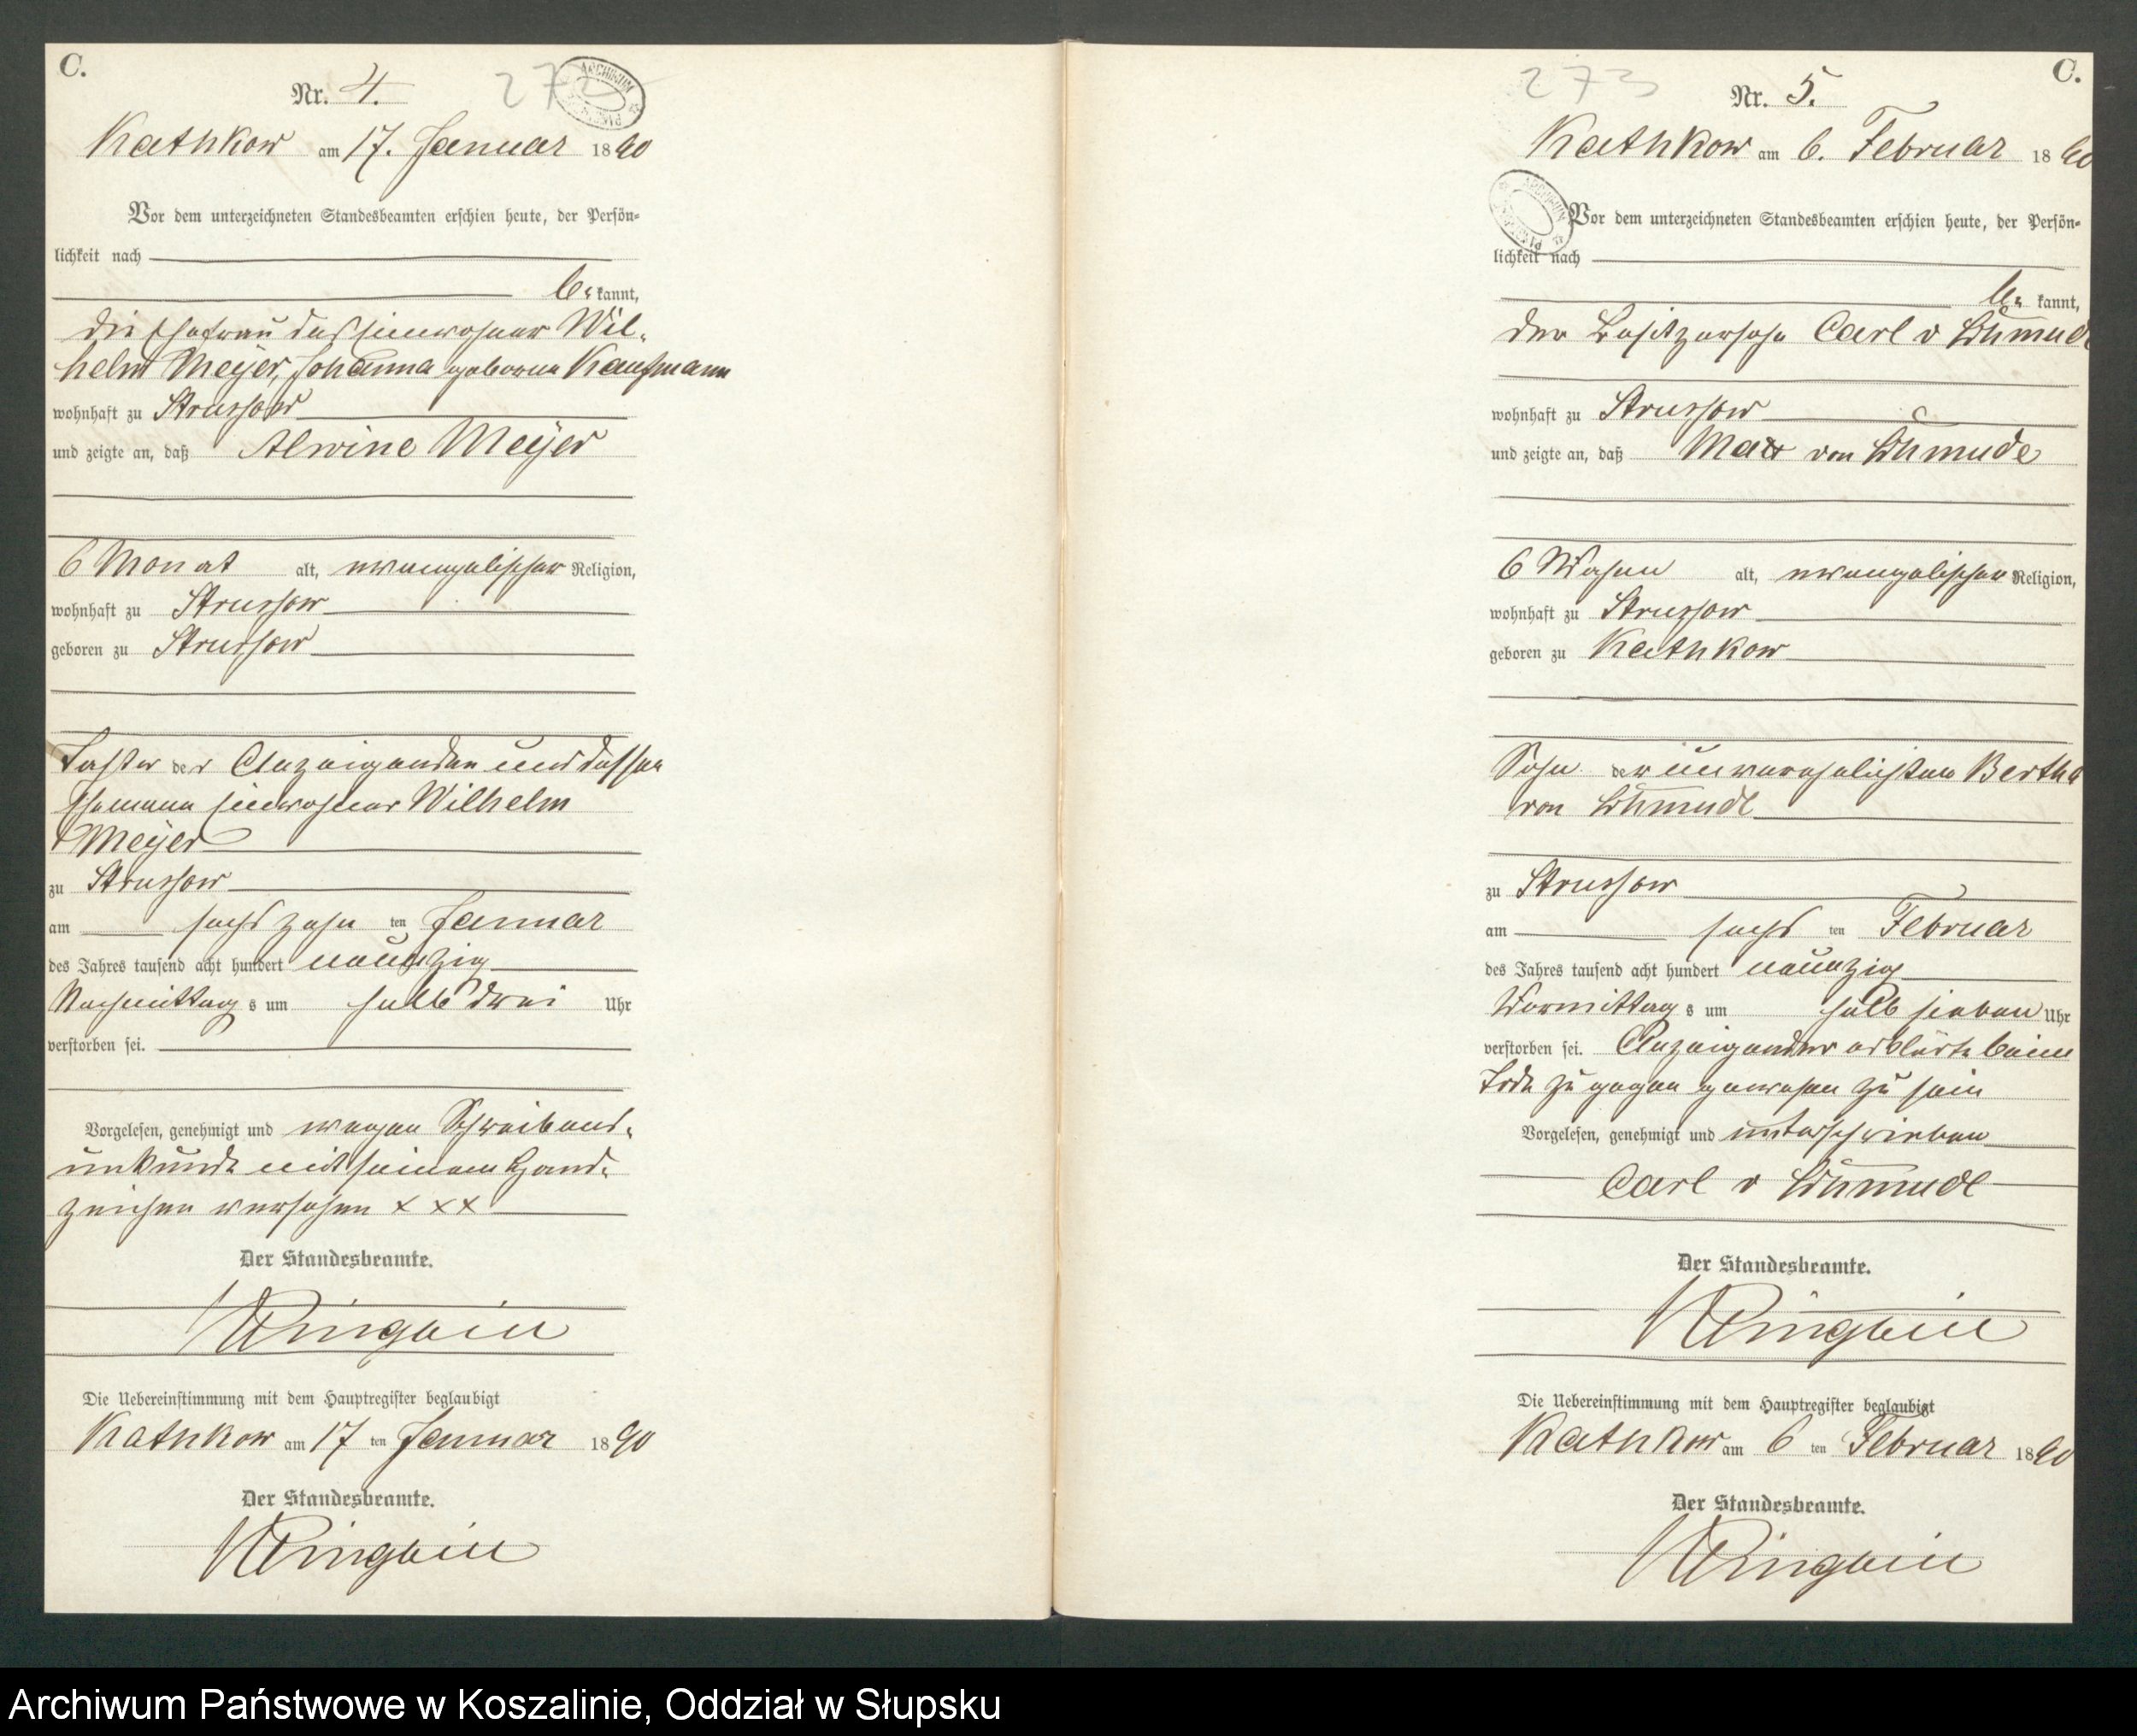 C.
Nr. 4.
272
ARCHIWUM
Kathkow am 17. Januar 1890
Vor dem unterzeichneten Standesbeamten erschien heute, der Persön-
lichkeit nach
be kannt,
die Ehefrau des Einwohner Wil-
helm Meyer, Johanna geborne Kaufmann
wohnhaft zu Strussow
und zeigte an, daß Alwine Meyer
6 Monat alt, evangelischer Religion,
wohnhaft zu Strussow
geboren zu Strussow
Tochter der Anzeigenden und dessen
Ehemann Einwohner Wilhelm
Meyer
zu Strussow
am sechszehn ten Januar
des Jahres tausend acht hundert neunzig
Nachmittag s um halb drei Uhr
verstorben sei.
Vorgelesen, genehmigt und wegen Schreibens-
unkunde mit seinem Hand-
zeichen versehen x x x
Der Standesbeamte.
Die Uebereinstimmung mit dem Hauptregister beglaubigt
Kathkow am 17 ten Januar 1890
Der Standesbeamte.
C.
273
Nr. 5.
Kathkow am 6. Februar 1890
ARCHIWUM
Vor dem unterzeichneten Standesbeamten erschien heute, der Persön-
lichkeit nach
be kannt,
der Besitzersohn Carl v
wohnhaft zu Strussow
und zeigte an, daß Max von
6 Wochen alt, evangelischer Religion,
wohnhaft zu Strussow
geboren zu Kathkow
Sohn der unverehelichten Bertha
von
zu Strussow
am sechs ten Februar
des Jahres tausend acht hundert neunzig
Vormittag s um halb sieben Uhr
verstorben sei. Anzeigender erklärte beim
Tode zu gegen gewesen zu sein
Vorgelesen, genehmigt und unterschrieben
Carl v
Der Standesbeamte.
Die Uebereinstimmung mit dem Hauptregister beglaubigt
Kathkow am 6 ten Februar 1890
Der Standesbeamte.
Archiwum Państwowe w Koszalinie, Oddział w Słupsku